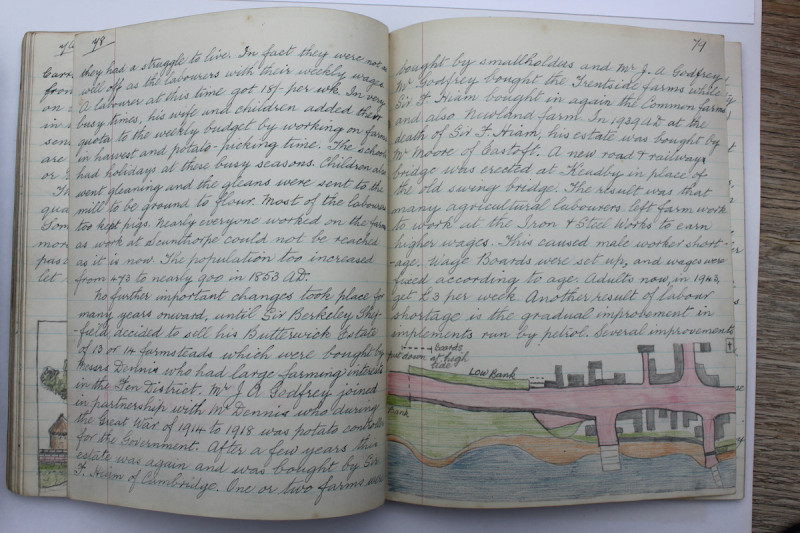 98
they had a struggle to live. In fact they were not as
well off as the labourers with their weekly wages.
A labourer at this time got 18/- per wk. In very
busy times, his wife and children added their
quota to the weekly budget by working on farms
in harvest and potato-picking time. The schools
had holidays at these busy seasons. Children also
went gleaning and the gleans were sent to the
mill to be ground to flour. Most of the labourers
too kept pigs. Nearly everyone worked on the farms
as work at Scunthorpe could not be reached
as it is now. The population too increased
from 473 to nearly 900 in 1853 AD.
No further important changes took place for
many years onward, until Sir Berkeley Shef-
field decided to sell his Butterwick Estate
of 13 or 14 farmsteads which were bought by
Messrs Dennis who had large farming interests
in the Fen District. Mr J. A Godfrey joined
in partnership with Mr Dennis who during
the Great War of 1914 to 1918 was potato controller
for the Government. After a few years this
estate was again and was bought by Sir
F. Hiam of Cambridge. One or two farms were
bought by smallholders and Mr J. A Godfrey,
Mr Godfrey bought the Trentside farms while
Sir F. Hiam bought in again the Common farms
and also Newland farm. In 1939 A.D. at the
death of Sir F. Hiam, his estate was bought by
Mr Moore of Eastoft. A new road & railway
bridge was erected at Keadby in place of
the old swing bridge. The result was that
many agricultural labourers left farm work
to work at the Iron & Steel Works to earn
higher wages. This caused male worker short-
-age. Wage Boards were set up, and wages were
fixed according to age. Adults now, in 1943,
get £3 per week. Another result of labour
shortage is the gradual improvement in
implements run by petrol. Several improvements
Boards
put down at high
tide
Low Bank
Bank